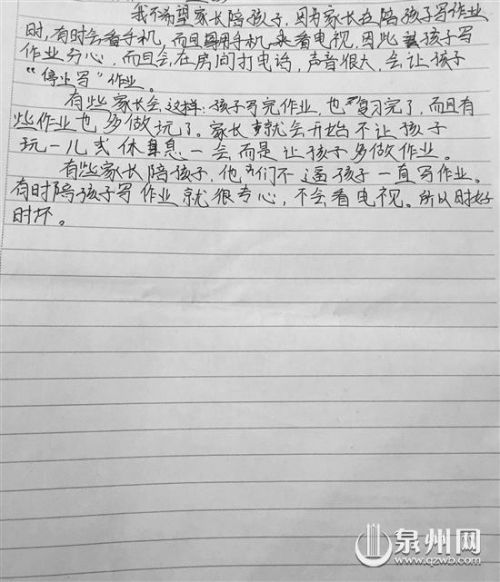 我不希望家长陪孩子,因为家长在陪孩子写作业
时,有时会看手机,而且用手机来看电视,因此孩子写
作业分心,而且会,在房间打电话,声音很大,会让孩子
“停止写”作业。
有些家长会这样:孩子写完作业,也复习完了,而且有
些作业也多做玩了。家长就会开始不让孩子
玩一儿或休息一会而是让孩子多做作业。
有些家长陪孩子,他们不逼孩子一直写作业。
有时陪孩子写作业就很专心,不会看电视。所以时好
时坏。
泉州网
www.qzwb.com